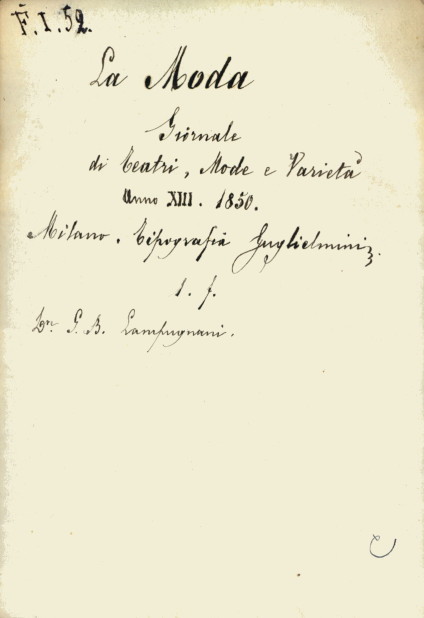 F. I. 52.
La Moda
Giornale
di Teatri, Mode e Varietà
Anno XIII. 1850.
Milano. Tipografia Guglielmini.
1. f.
G. B. Lampugnani.